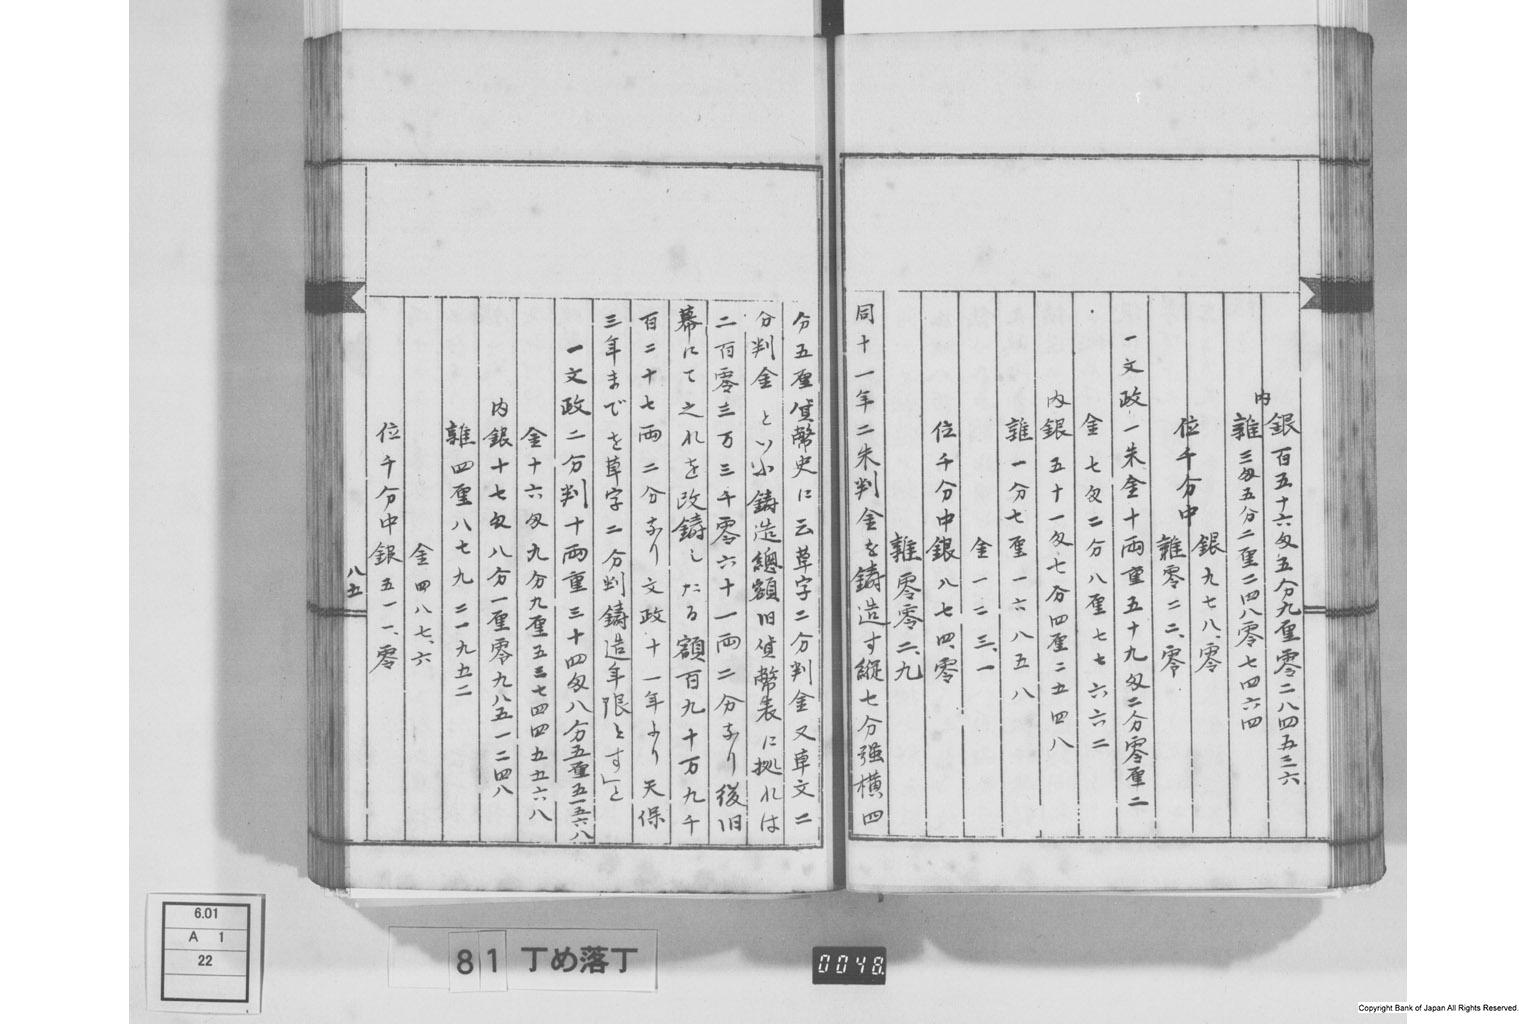 内銀百五十六匁五分九厘零二八四五三六
雑三匁五分二厘二四八零七四六四
銀九七八、零
位千分中
雑零二二、零
一文政一朱金十両量五十九匁二分零厘二
金七匁二分八厘七七六六二
内銀五十一匁七分四厘二五四八
雑一分七厘一六八五八
金一二三、一
位千分中銀八七四、零
雑零零二、九
同十一年二朱判金を鋳造す縦七分強横四
分五厘貨幣史に云草字二分判金又草文二
分判金といふ鋳造總額旧貨幣表に拠れは
二百零三万三千零六十一両二分なり後旧
幕にて之れを改鋳したる額百九十万九千
百二十七両二分なり文政十一年より天保
三年までを草字二分判鋳造年限とす」と
一文政二分判十両量三十四匁八分五厘五一五六八
金十六匁九分九厘五三七四四五五六八
内銀十七匁八分一厘零九八五一二四八
雑四厘八七九二一九五二
金四八七、六
位千分中銀五一一、零
八五
6.01
A 1
22
81 丁め落丁
0048
Copyright Bank of Japan All Rights Reserved.